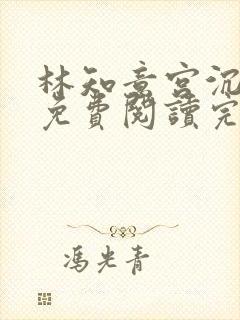 林知意宮沉
免費閱讀完
馮光青